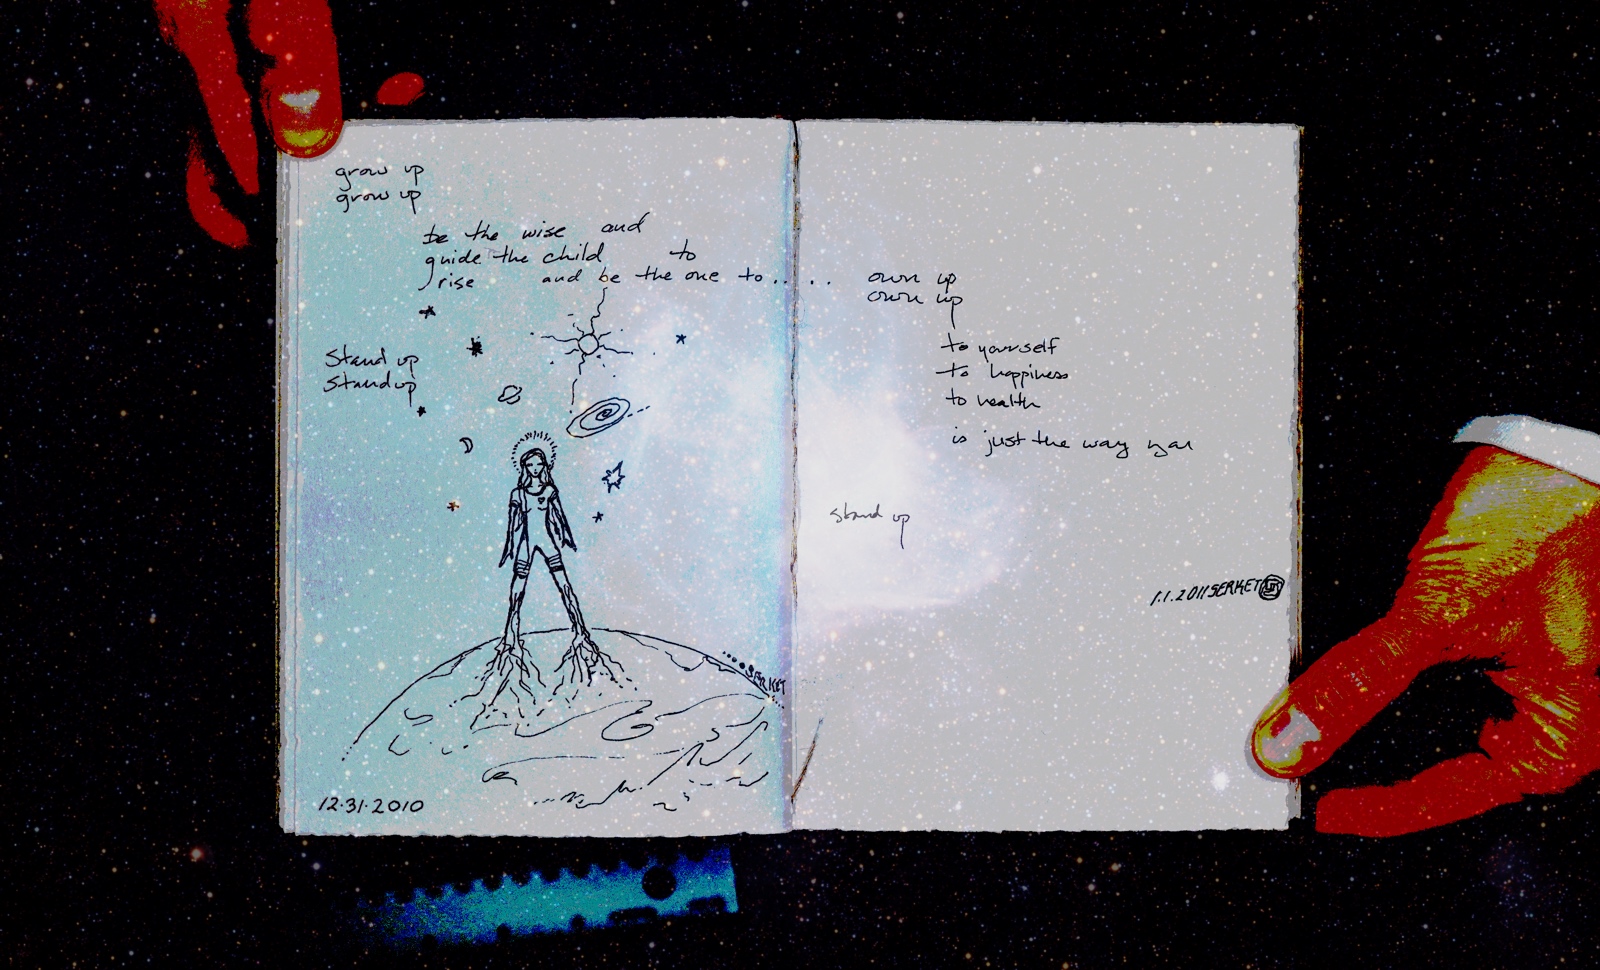 grow up
grow up
be the wise and
guide the child to
rise and be the one to.....
Stand up
Stand up
SERKET
12.31.2010
own up
own up
to yourself
to happiness
to health
is just the way you
stand up
1.1.2011 SERKET